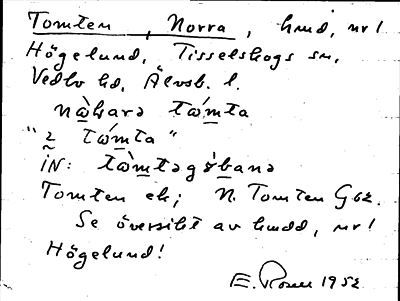 Tomten, Norra, hmd, nr 1
Högelund, Tisselskogs sn,
Vedbo hd, Älvsb. l.
nὰkarə tώmta
"2 tώmta"
iN: tὼmtəgꞷ́banə
Tomten ek; N. Tomten Gbz.
Se översikt av hmdd, nr 1
Högelund!
E. Rosell 1952